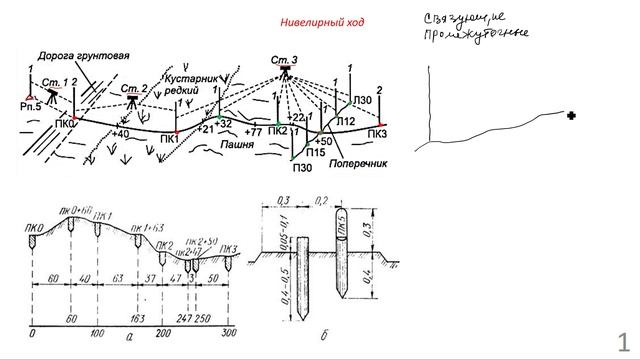 Нивелирный ход
Связующие
Промежуточные
Дорога грунтовая
Ст. 1
Ст. 2
Ст. 3
Кустарник
редкий
1 1 2 1 1 1 1 1 1 2
Рп.5
ПК0
+40
ПК1
+21
+32
+77
ПК2
+22
+50
Л12
Л30
ПК3
Пашня
П15
П30
Поперечник
ПК0
пк0+60
ПК1
пк1+63
ПК2
пк2+47
пк2+50
ПК3
60 40 63 37 47 3 50
60 163 247 250
0 100 200 300
а
0,3 0,2
0,05-0,1
0,4-0,5
ПК5
0,3
0,4
б
1